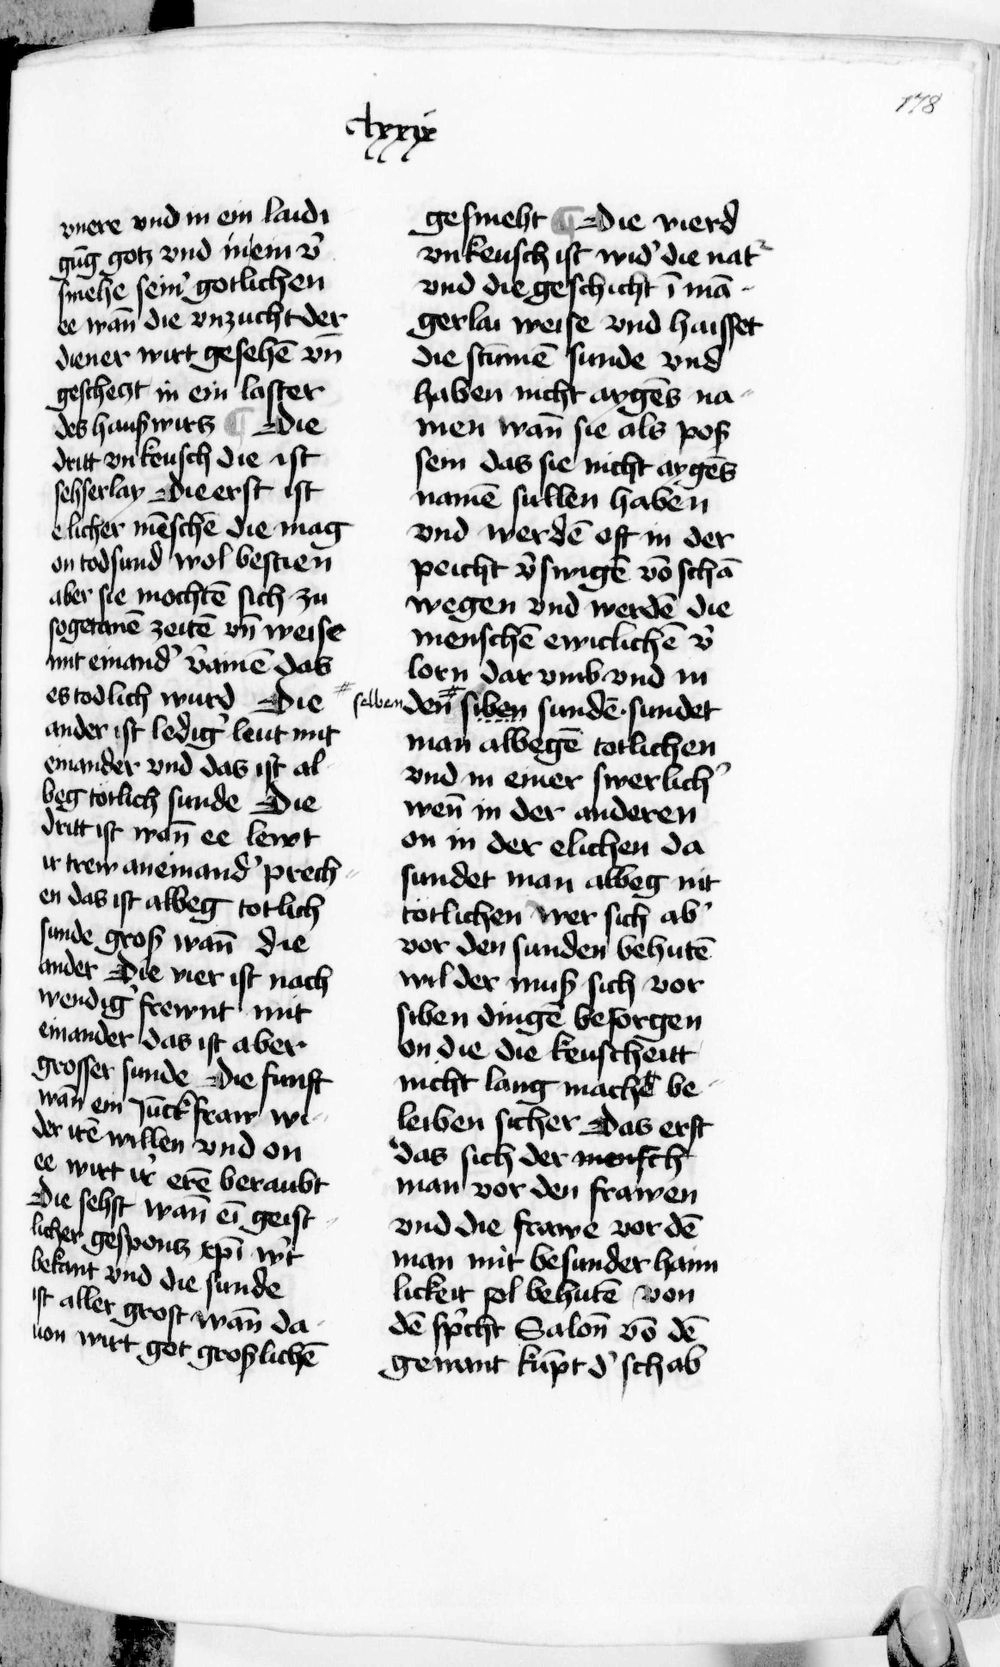 178
clxxix
vnere vnd in ein laidi
gūg gotz vnd in̄ ein v̉
smehe sein̉ gotlichen
ee wan̄ die vnzucht der
diener wirt gesehē vn̄
geschetzt in ein laster
des haußwirtz ¶ Die
dritt vnkeusch die ist
sehserlay Die erst ist
elicher mēschē die mag
on todsund wol bestien
aber sie mochtē sich zu
sogetanē zeitē vn̄ weise
mit einand̉ v̉ainē das
es todlich wurd Die
ander ist ledig̉ leut mit
einander vnd das ist al
beg totlich sunde Die
dritt ist wan̄ ee lewt
ir trew aneinand̉ prech
en das ist albeg totlich
sunde groß wan̄ die
ander Die vier ist nach
wendig̉ frewnt mit
einander das ist aber
grosser sunde Die funft
wan̄ ein Jūckfraw wi
der irē willen vnd on
ee wirt ir̉ erē beraubt
Die sehst wan̄ eī geist
licher gespontz xpī w̉t
bekant vnd die sunde
ist aller grost wan̄ da
uon wirt got großlichē
gesmeht ¶ Die vierd
vnkeusch ist wid̉ die nat̉
vnd die geschicht ī mā
gerlai weise vnd haisset
die stūmē sunde vnd
haben nicht aygēs na
men wan̄ sie als poß
sein das sie nicht aygēs
namē sullen haben
vnd werdē oft in der
peicht v̉swigē vō schā
wegen vnd werdē die
menschē ewiclichē v̉
lorn dar vmb vnd in
selben den̄ siben sundē sundet
man albegē totlichen
vnd in einer swerlich̉
wen̄ in der anderen
on in der elichen da
sundet man albeg nit
totlichen wer sich ab̉
vor den sunden behutē
wil der muß sich vor
siben dingē besorgen
on die die keuscheitt
nicht lang machē be
leiben sicher Das erst
das sich der mensch
man vor den frawen
vnd die frawe vor dē
man mit besunder haim
lickeit sol behutē von
dē sp̉cht Salon̄ vō dē
gewant kūpt d̉ schab